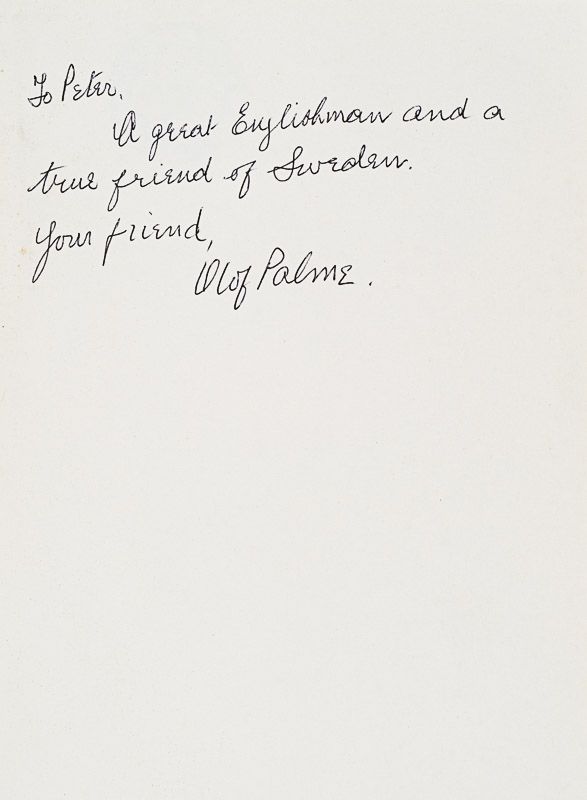 To Peter.
A great Englishman and a
true friend of Sweden.
Your friend,
Olof Palme.